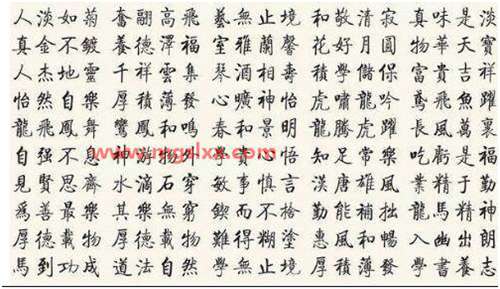 人淡如菊 奮翮高飛 藝無止境 和敬清寂 真味是淡
真金不鍍 養德澤福 室雅蘭馨 花好月圓 物華天寶
人杰地靈 千祥雲集 琴酒相壽 積學儲保 富貴吉祥
怡然自樂 厚積薄發 心曠神怡 虎嘯龍吟 鳶飛魚躍
龍飛鳳舞 鸞鳳和鳴 春和景明 龍騰虎躍 長風萬裏
自强不息 神游物外 心悟 知足常樂 吃虧是福
見賢思齊 水滴石穿 敏事慎言 漢唐雄風 業精于勤
爲善最樂 其樂無窮 鍥而不捨 勤能補拙 龍馬精神
厚德載物 厚德載物 難得糊塗 惠風和暢 入幽出朗
馬到功成 道法自然 學無止境 厚積薄發 學書養志